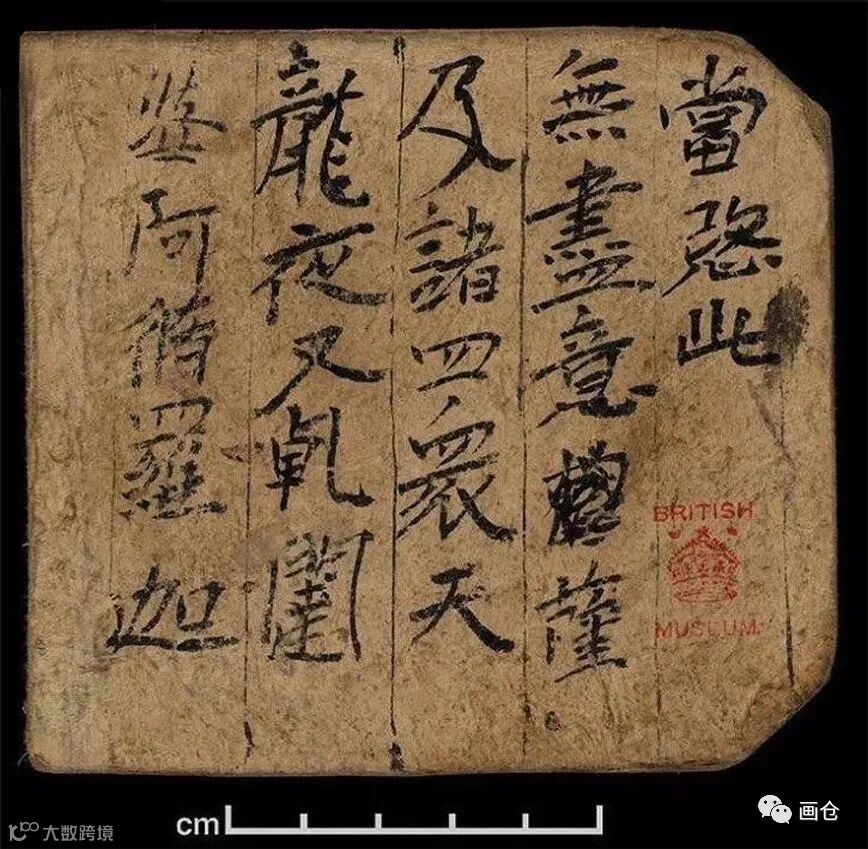 當愍此
無盡意薩
及諸四眾天
龍夜叉乹闥
婆阿脩羅迦
BRITISH
MUSEUM
cm
画仓
大数跨境